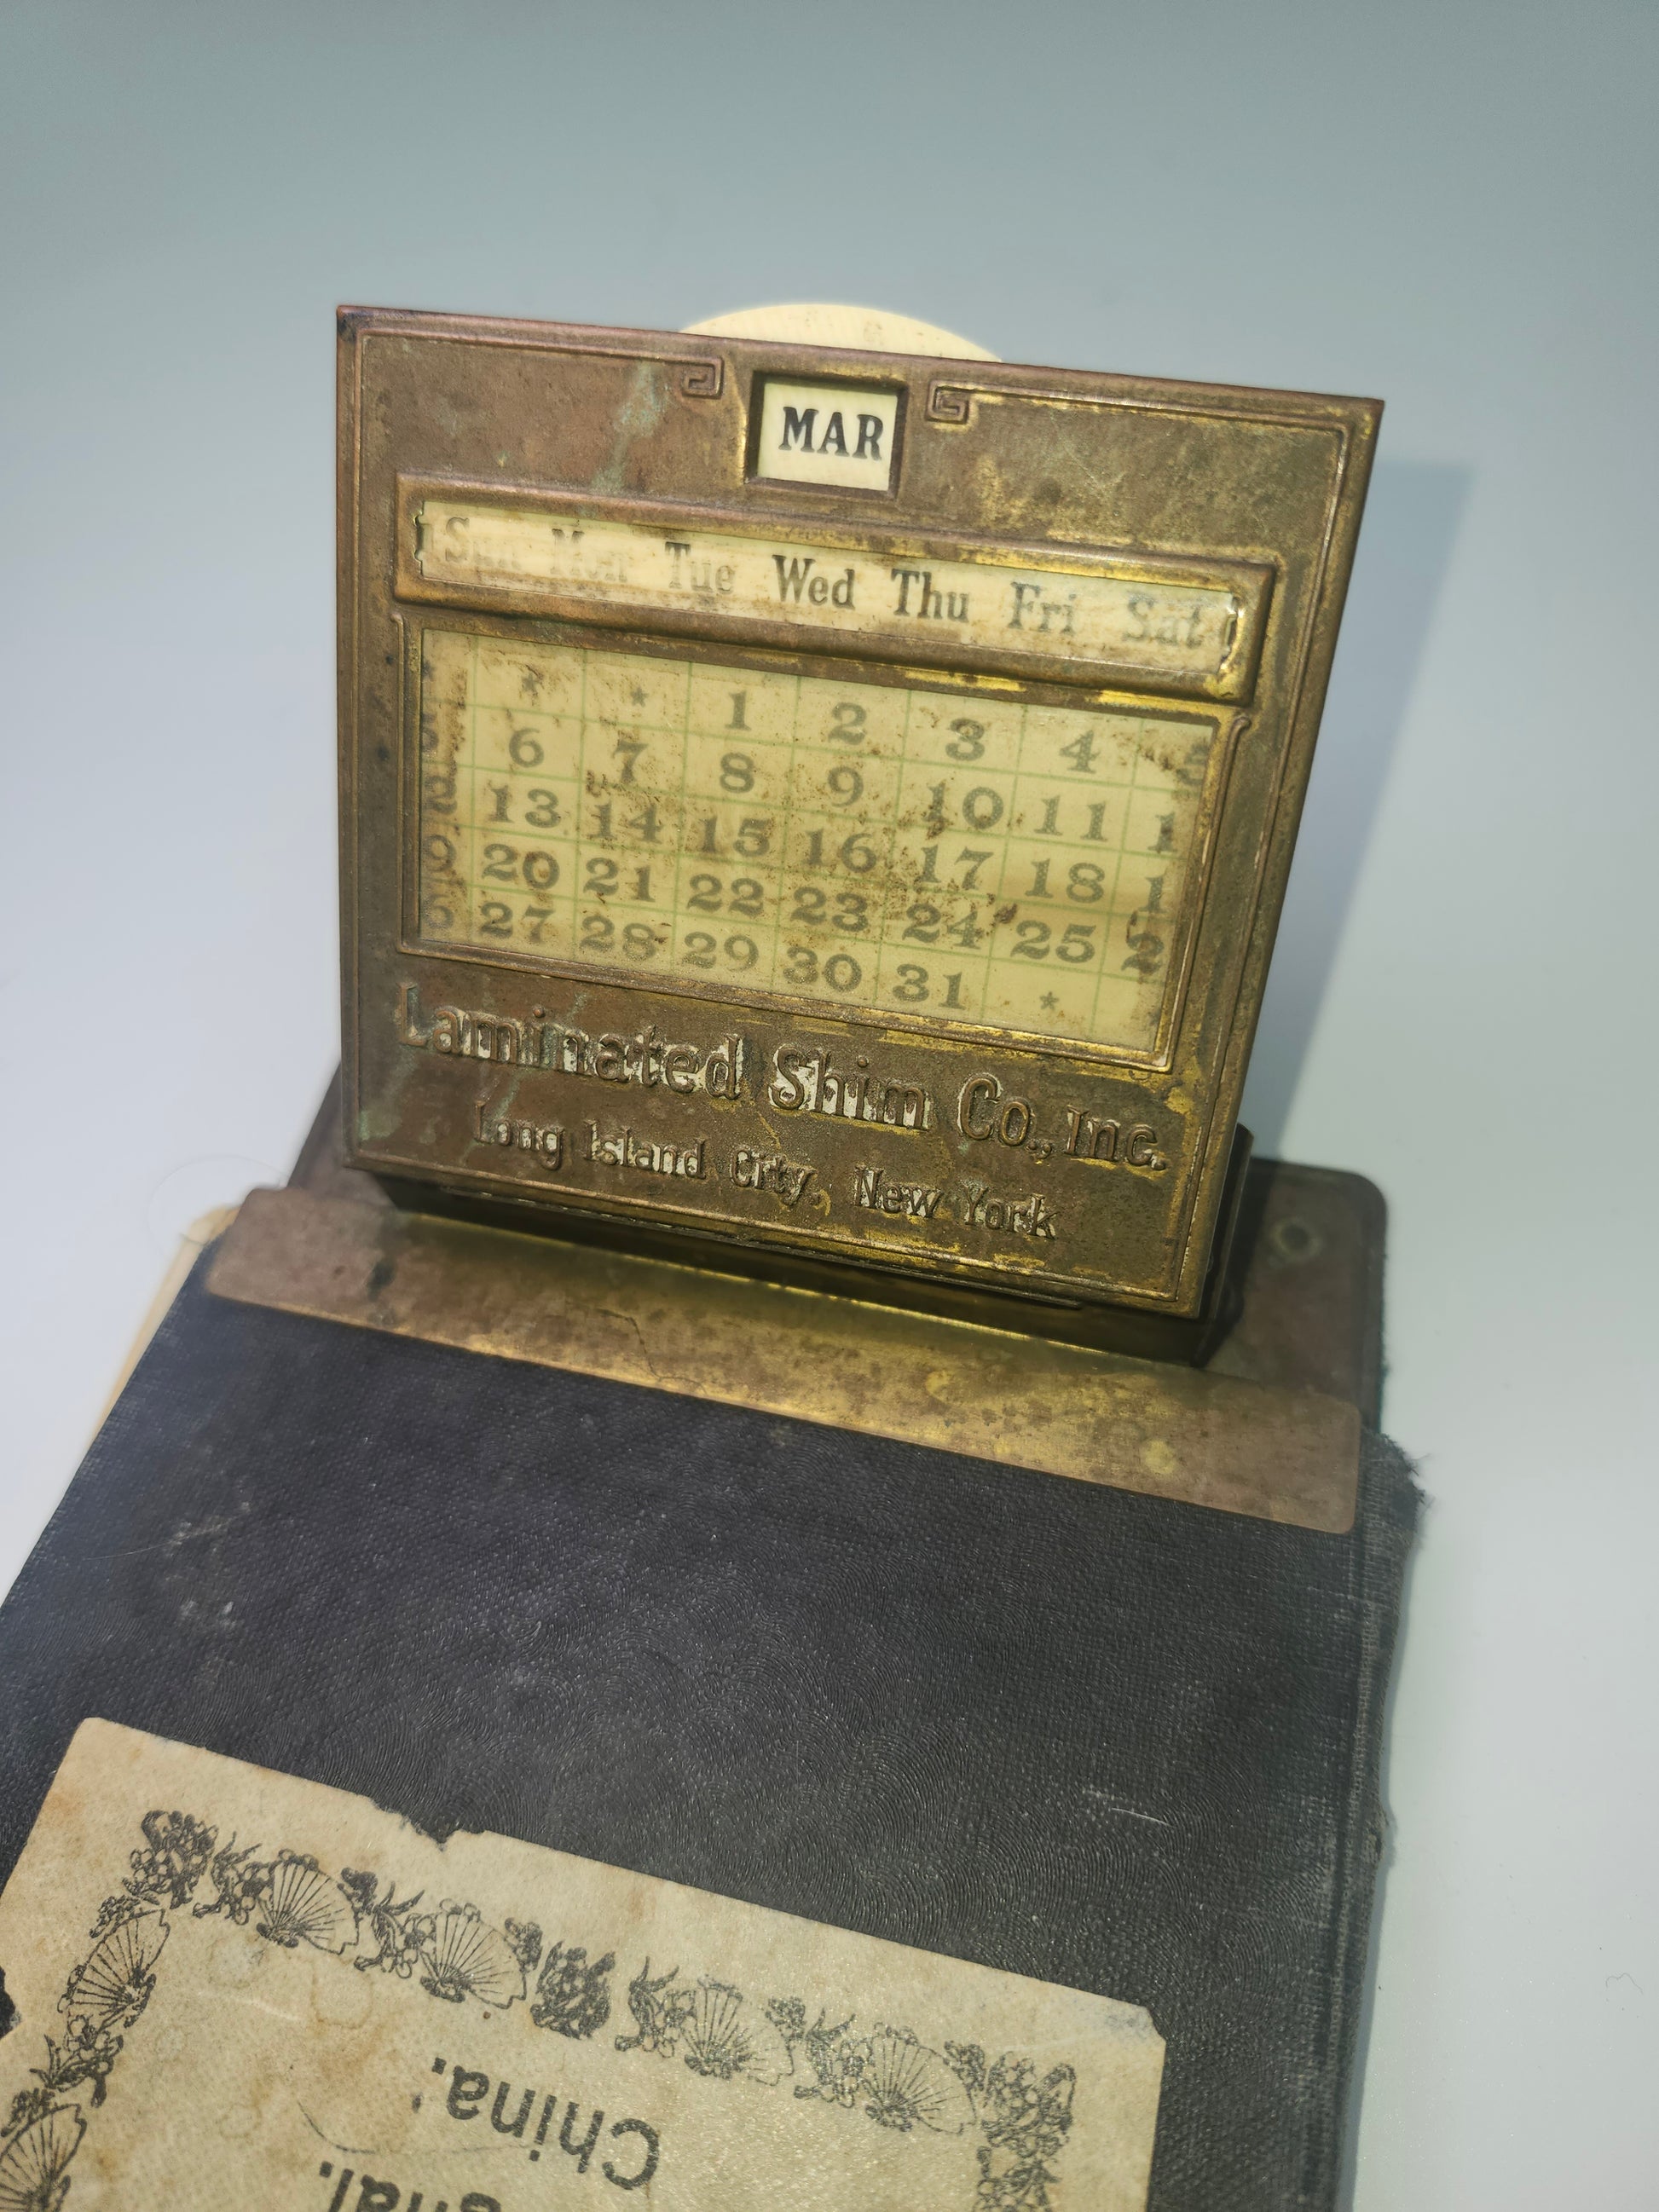 MAR
Sun Mon Tue Wed Thu Fri Sat
* * 1 2 3 4 5
6 7 8 9 10 11 1
13 14 15 16 17 18 1
20 21 22 23 24 25 2
27 28 29 30 31 *
Laminated Shim Co., Inc.
Long Island City, New York
China.